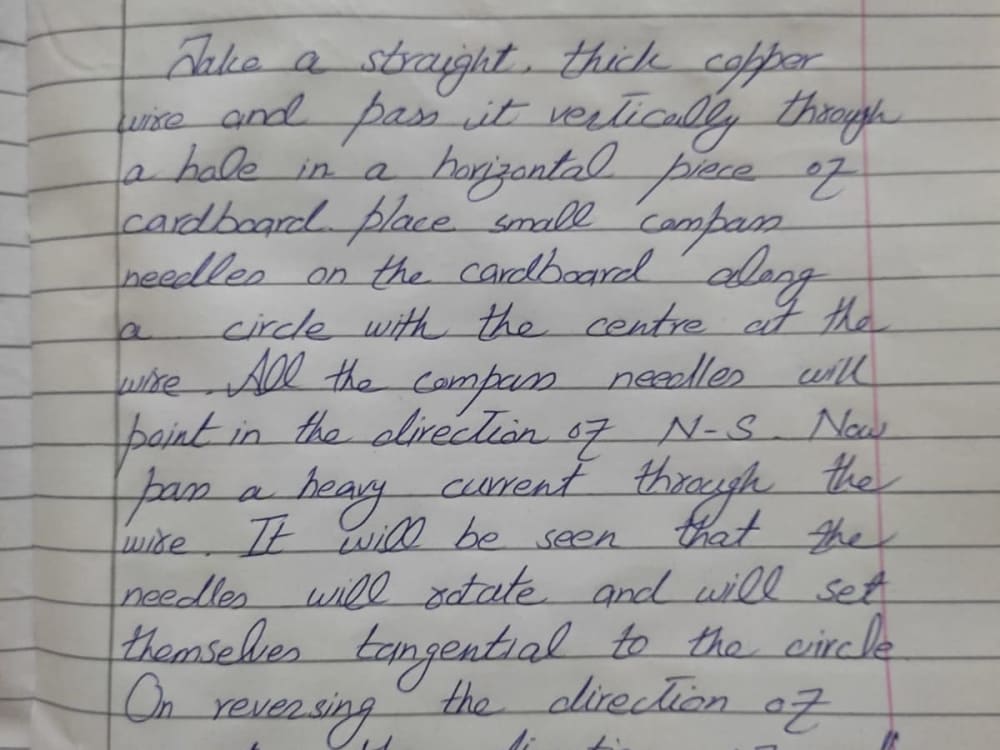 Take a straight, thick copper
wire and pass it vertically through
a hole in a horizontal piece of
cardboard. place small compass
needles on the cardboard along
a circle with the centre at the
wire. All the compass needles will
point in the direction of N-S. Now
pass a heavy current through the
wire. It will be seen that the
needles will rotate and will set
themselves tangential to the circle
On reversing the direction of